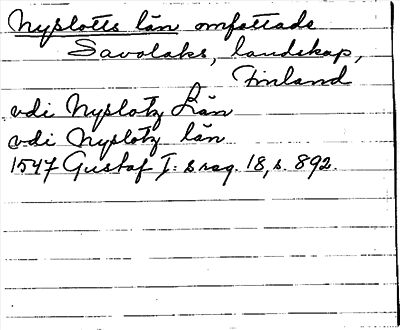 Nyslotts län omfattade
Savolaks, landskap,
Finland
vdi Nyslotz Län
vdi Nyslotz län
1547 Gustaf I: s reg. 18, s. 892.